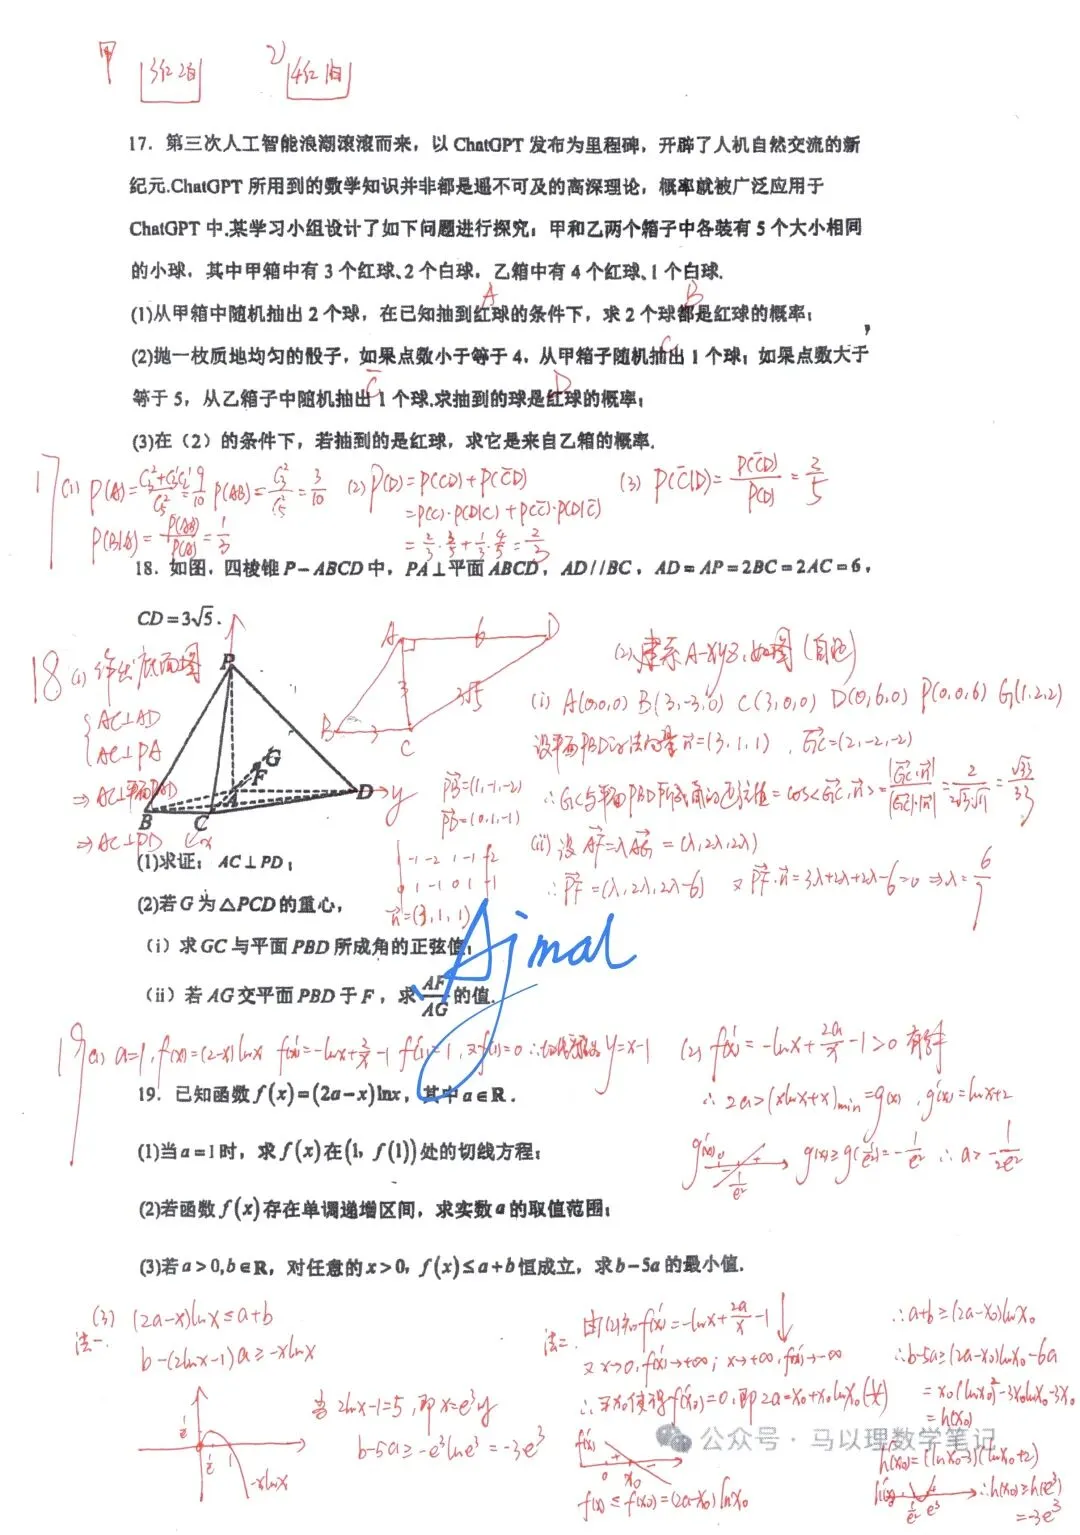 甲 3红2白 2) 4红1白
17. 第三次人工智能浪潮滚滚而来，以 ChatGPT 发布为里程碑，开辟了人机自然交流的新
纪元.ChatGPT 所用到的数学知识并非都是遥不可及的高深理论，概率就被广泛应用于
ChatGPT 中.某学习小组设计了如下问题进行探究：甲和乙两个箱子中各装有 5 个大小相同
的小球，其中甲箱中有 3 个红球、2 个白球，乙箱中有 4 个红球、1 个白球.
A B
(1)从甲箱中随机抽出 2 个球，在已知抽到红球的条件下，求 2 个球都是红球的概率；
C
(2)抛一枚质地均匀的骰子，如果点数小于等于 4，从甲箱子随机抽出 1 个球；如果点数大于
C̄ D
等于 5，从乙箱子中随机抽出 1 个球.求抽到的球是红球的概率；
(3)在（2）的条件下，若抽到的是红球，求它是来自乙箱的概率.
17 (1) P(A)=(C₃²+C₃¹C₂¹)/C₅²=9/10 P(AB)=C₃²/C₅²=3/10 (2) P(D)=P(CD)+P(C̄D) (3) P(C̄|D)=P(C̄D)/P(D)=2/5
=P(C)·P(D|C)+P(C̄)·P(D|C̄)
P(B|A)=P(AB)/P(A)=1/3
=2/3·3/5+1/3·4/5=2/3
18. 如图，四棱锥 P－ABCD 中，PA⊥平面 ABCD，AD//BC，AD＝AP＝2BC＝2AC＝6，
CD＝3√5.
18 (1) 作出底面图
{AC⊥AD
AC⊥PA
⇒AC⊥平面PAD
⇒AC⊥PD
P G F A D B C y x
A 6 D 3 3√5 B 3 C
PB=(1,-1,-2)
PD=(0,1,-1)
1 -1 -2 1 -1 -2
0 1 -1 0 1 -1
n=(3,1,1)
(2) 建系A-xyz,如图
(i) A(0,0,0) B(3,-3,0) C(3,0,0) D(0,6,0) P(0,0,6) G(1,2,2)
设平面PBD的法向量n=(3,1,1), GC=(2,-2,-2)
∴GC与平面PBD所成角的正弦值=cos<GC,n>=|GC·n|/|GC|·|n|=2/(2√3·√11)=√33/33
(ii) 设AF=λAG=(λ,2λ,2λ)
∴PF=(λ,2λ,2λ-6) 又PF·n=3λ+2λ+2λ-6=0⇒λ=6/7
(1)求证：AC⊥PD；
(2)若 G 为△PCD 的重心，
（i）求 GC 与平面 PBD 所成角的正弦值；
（ii）若 AG 交平面 PBD 于 F，求 AF/AG 的值.
Ajmal
19 (1) a=1, f(x)=(2-x)lnx f'(x)=-lnx+2/x-1 f'(1)=1, 又f(1)=0 ∴切线方程为y=x-1
(2) f'(x)=-lnx+2a/x-1>0 有解
∴2a>(xlnx+x)min=g(x), g'(x)=lnx+2
g'(x) 0 - + 1/e² g(x)≥g(1/e²)=-1/e² ∴a>-1/2e²
19. 已知函数 f(x)=(2a-x)lnx，其中 a∈R.
(1)当 a=1 时，求 f(x) 在 (1, f(1)) 处的切线方程；
(2)若函数 f(x) 存在单调递增区间，求实数 a 的取值范围；
(3)若 a>0,b∈R，对任意的 x>0，f(x)≤a+b 恒成立，求 b-5a 的最小值.
(3) (2a-x)lnx≤a+b
法一. b-(2lnx-1)a≥-xlnx
当2lnx-1=5,即x=e³时
b-5a≥-e³lne³=-3e³
1/e 1/e 1 -xlnx
法二. 由(2)知f'(x)=-lnx+2a/x-1↓
又x→0,f'(x)→+∞; x→+∞,f'(x)→-∞
∴∃x₀使得f'(x₀)=0,即2a=x₀+x₀lnx₀
f'(x) + - 0 x₀
f(x)≤f(x₀)=(2a-x₀)lnx₀
∴a+b≥(2a-x₀)lnx₀
∴b-5a≥(2a-x₀)lnx₀-6a
=x₀(lnx₀)²-3x₀lnx₀-3x₀
=h(x₀)
h'(x₀)=(lnx₀-3)(lnx₀+2)
h'(x₀) 1/e² e³ ∴h(x₀)≥h(e³)
=-3e³
公众号·马以理数学笔记